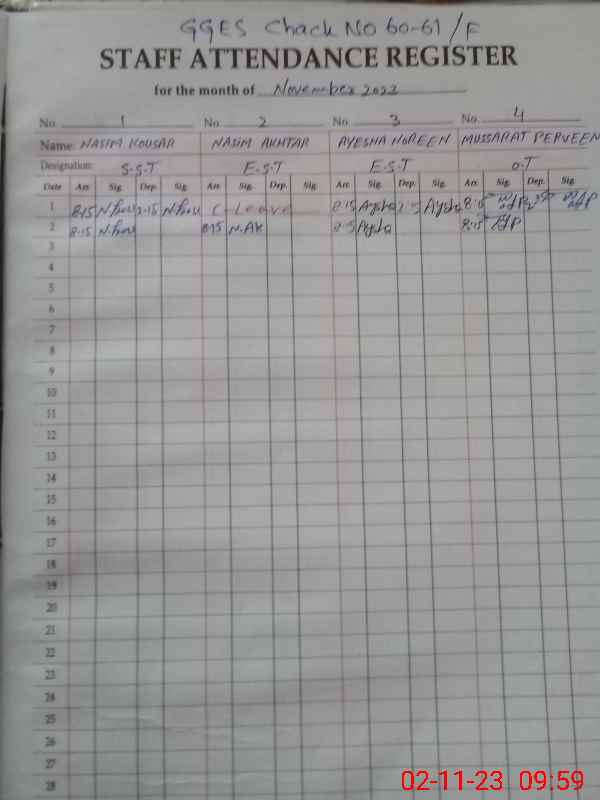 GGES Chack No 60-61/F
STAFF ATTENDANCE REGISTER
for the month of November 2022
No. 1 No. 2 No. 3 No. 4
Name: NASIM KOUSAR NASIM AKHTAR AYESHA NOREEN MUSSARAT PERVEEN
Designation: S.S.T E.S.T E.S.T O.T
Date Arr. Sig. Dep. Sig. Arr. Sig. Dep. Sig. Arr. Sig. Dep. Sig. Arr. Sig. Dep. Sig.
1 8-15 2-15 C-Leave 8-15 Aysha Aysha 8-15
2 8-15 8-15 N.AK 8-15 Aysha 8-15
3
4
5
6
7
8
9
10
11
12
13
14
15
16
17
18
19
20
21
22
23
24
25
26
27
28
02-11-23 09:59